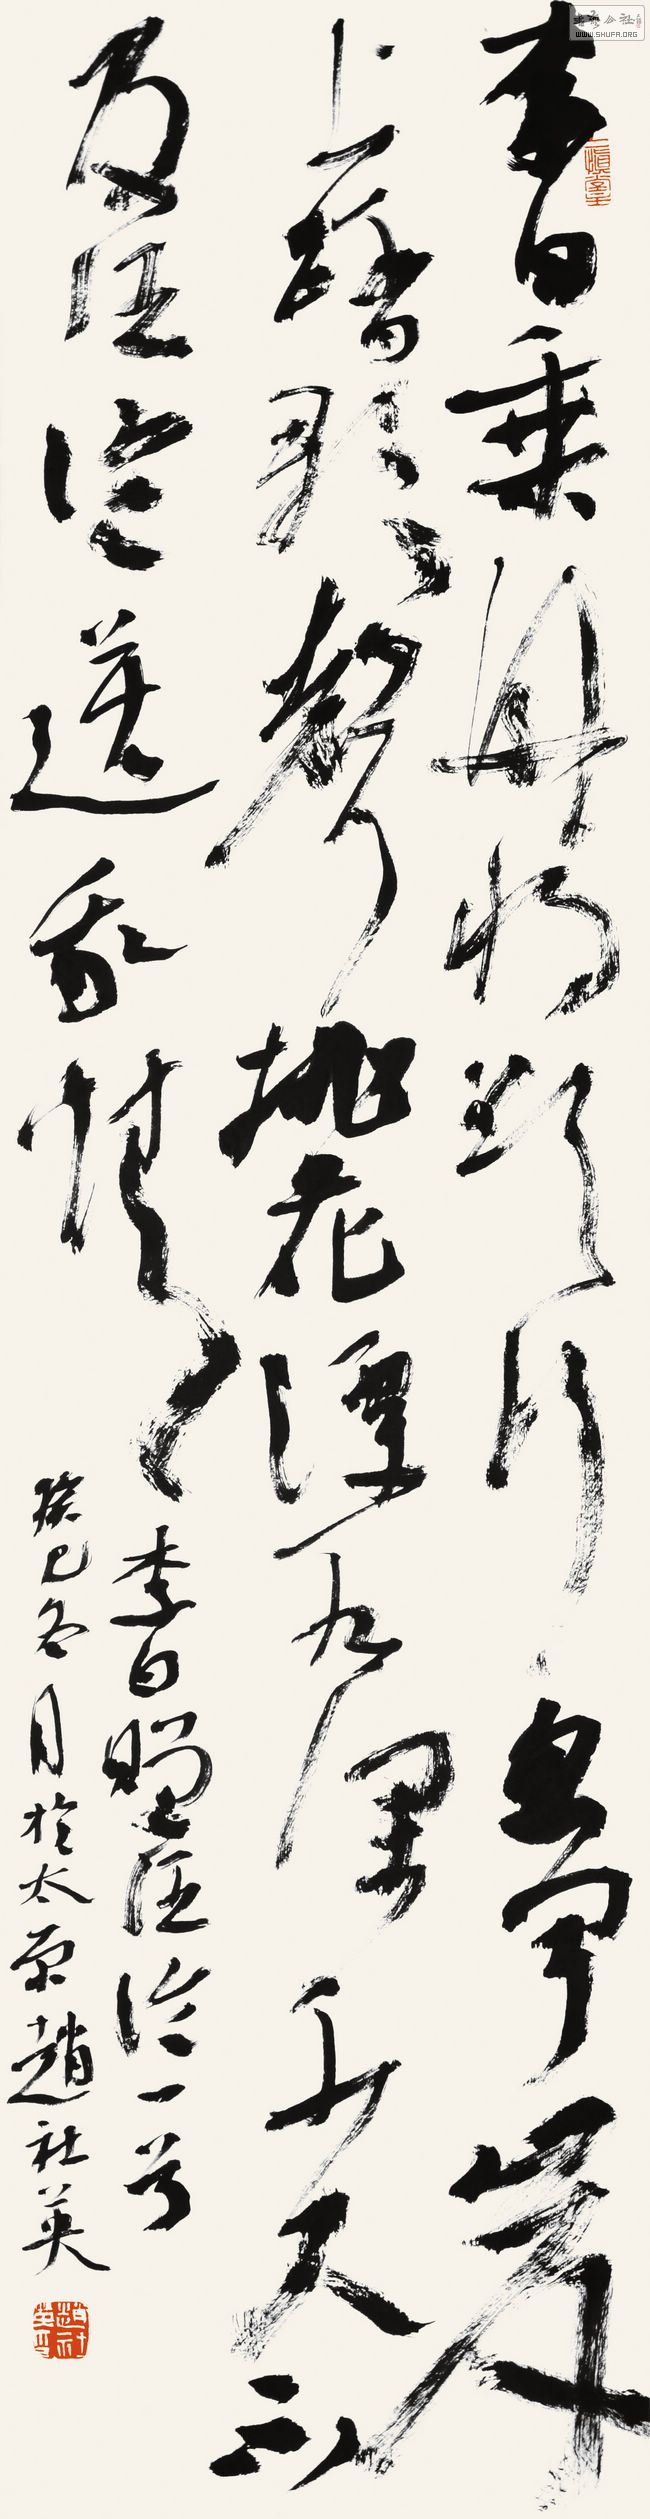 李白乘舟將欲行忽聞岸
上踏歌聲桃花潭水深千尺不
及汪倫送我情
李白贈汪倫一首
癸巳冬月於太原趙社英
趙社英印
WWW.SHUFA.ORG